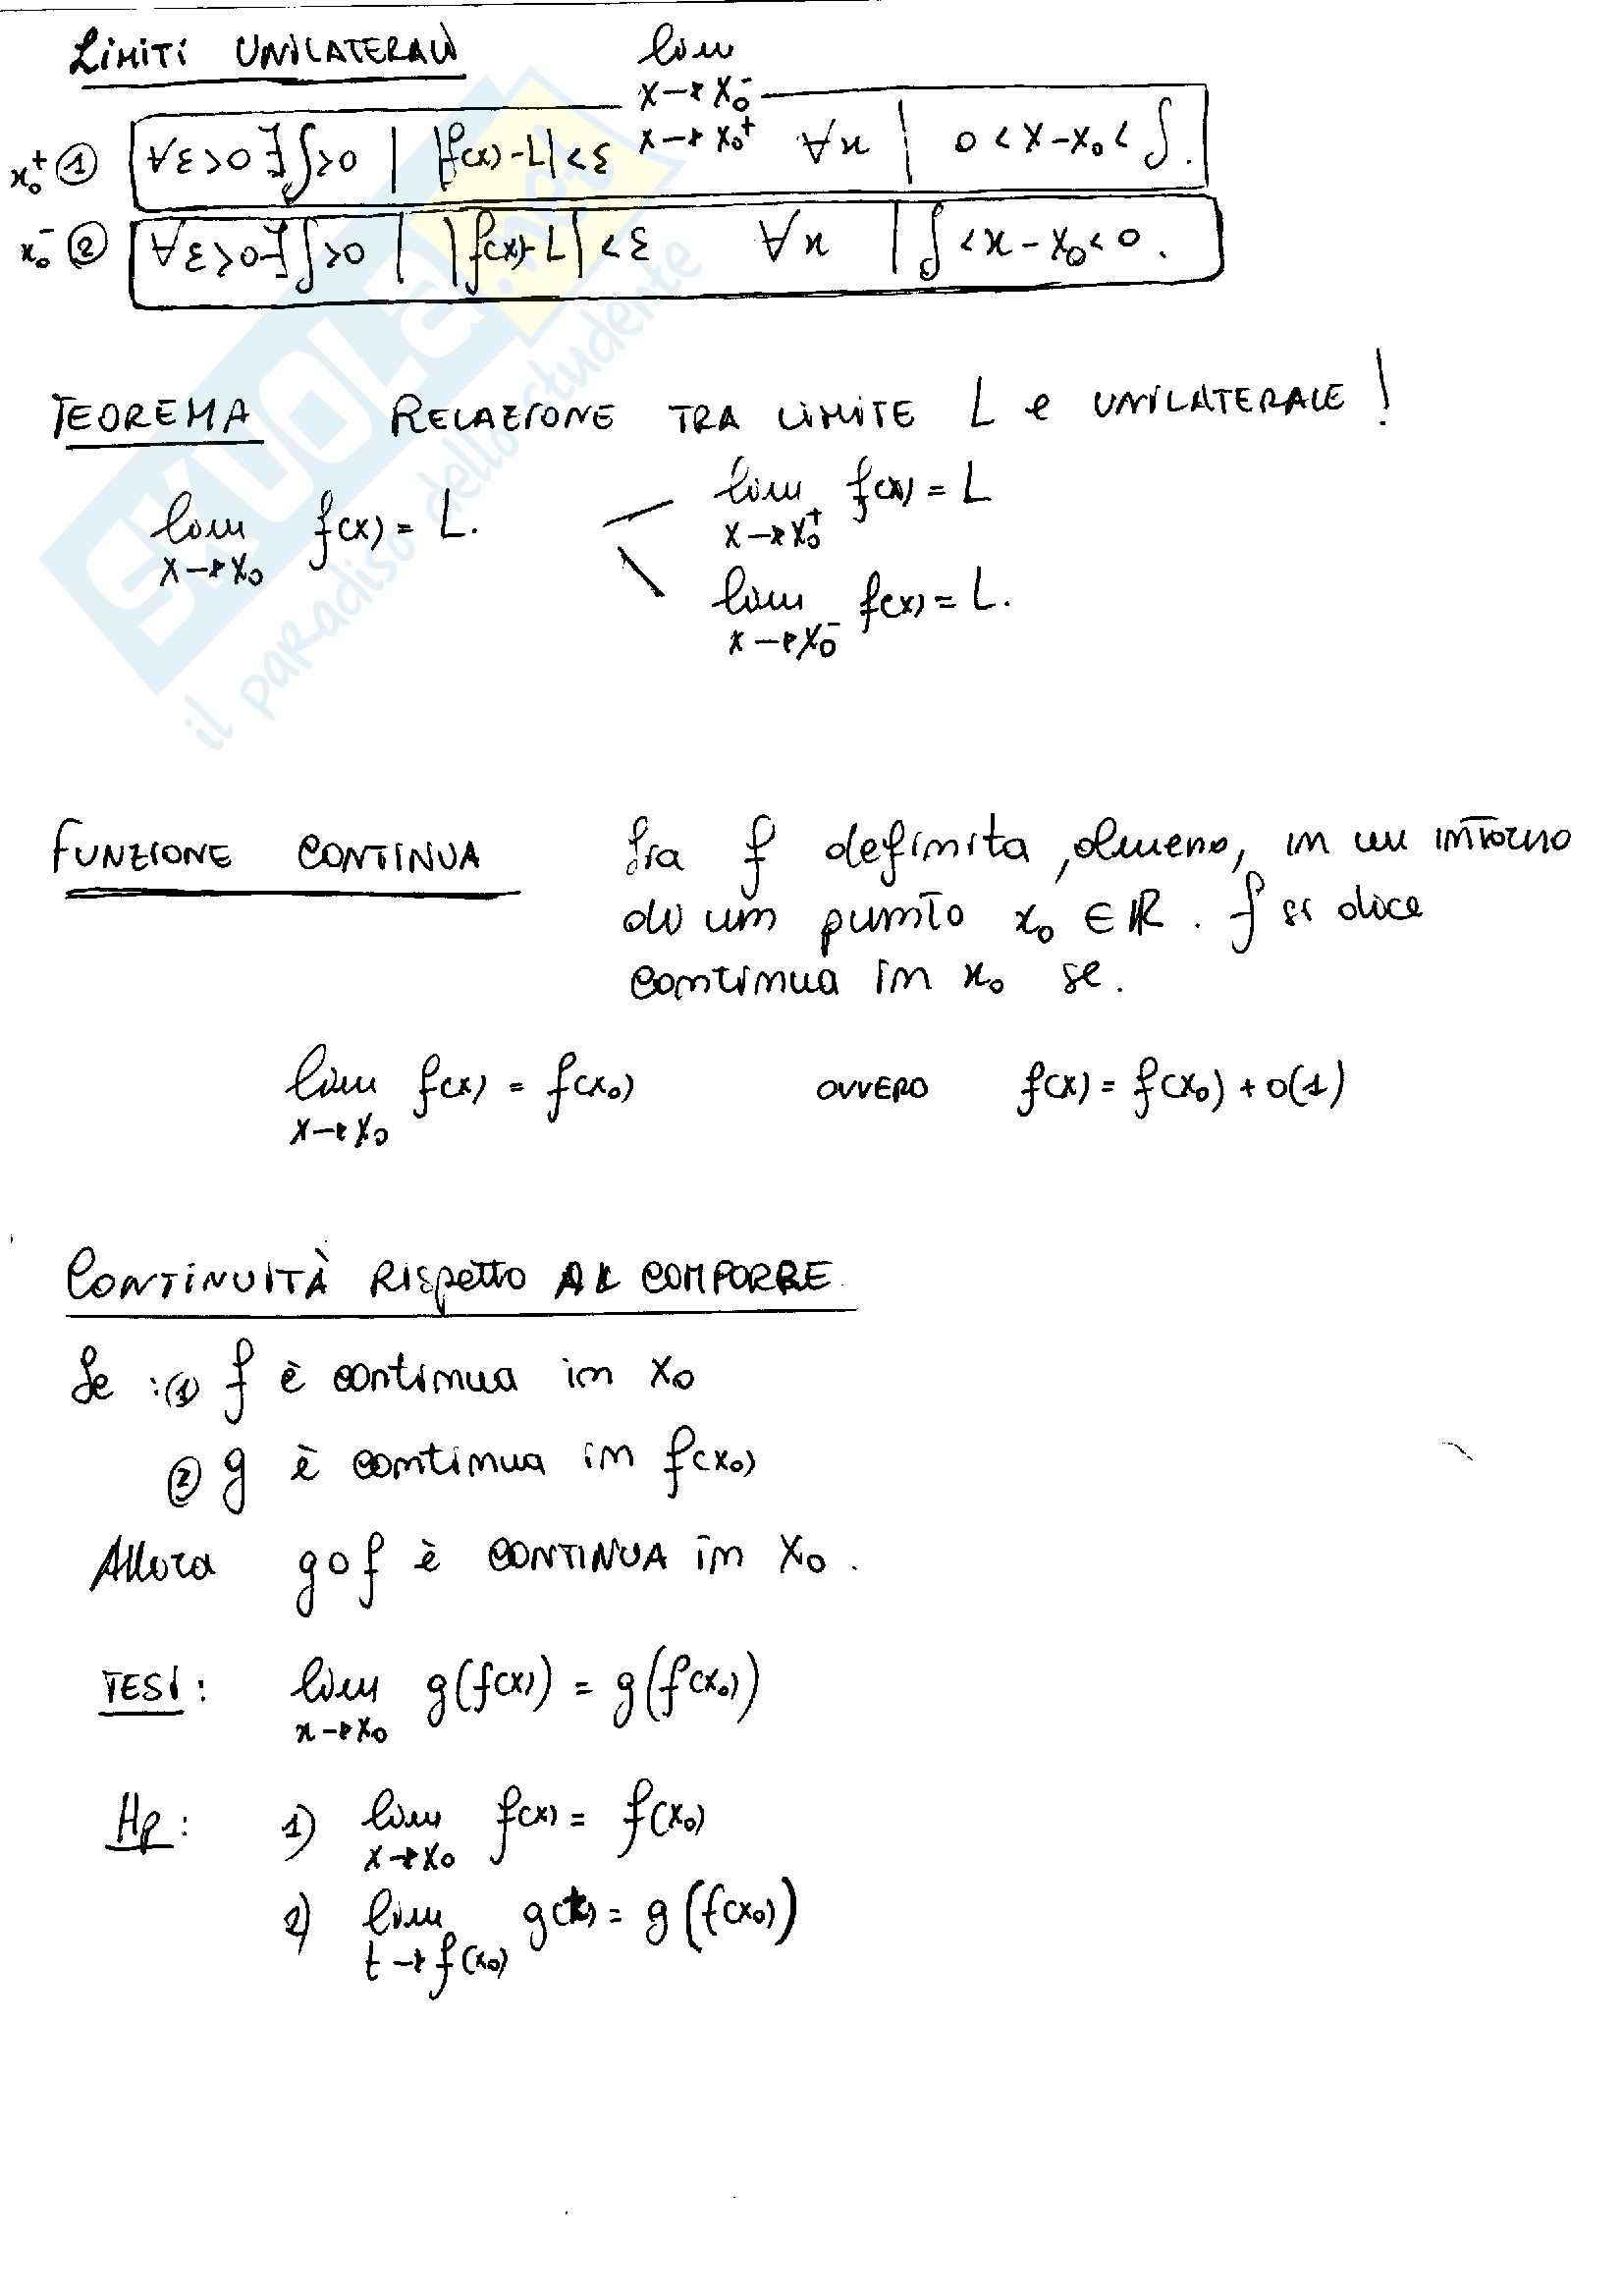 LIMITI UNILATERALI lim
x→x₀⁻
x→x₀⁺
x₀⁺ ① ∀ε>0 ∃∫>0 | |f(x)-L|<ε ∀x | 0<x-x₀<∫.
x₀⁻ ② ∀ε>0 ∃∫>0 | |f(x)-L|<ε ∀x | ∫<x-x₀<0.
TEOREMA RELAZIONE TRA LIMITE L e UNILATERALE!
lim f(x) = L. lim f(x) = L
x→x₀ x→x₀⁺
lim f(x) = L.
x→x₀⁻
FUNZIONE CONTINUA Sia f definita, almeno, in un intorno
di un punto x₀ ∈ ℝ. f si dice
continua in x₀ se.
lim f(x) = f(x₀) OVVERO f(x) = f(x₀) + o(1)
x→x₀
CONTINUITÀ RISPETTO AL COMPORRE.
Se : ① f è continua in x₀
② g è continua in f(x₀)
Allora g∘f è CONTINUA in x₀.
TESI: lim g(f(x)) = g(f(x₀))
x→x₀
Hp: 1) lim f(x) = f(x₀)
x→x₀
2) lim g(t) = g(f(x₀))
t→f(x₀)
SKUOLA.net
il paradiso dello studente